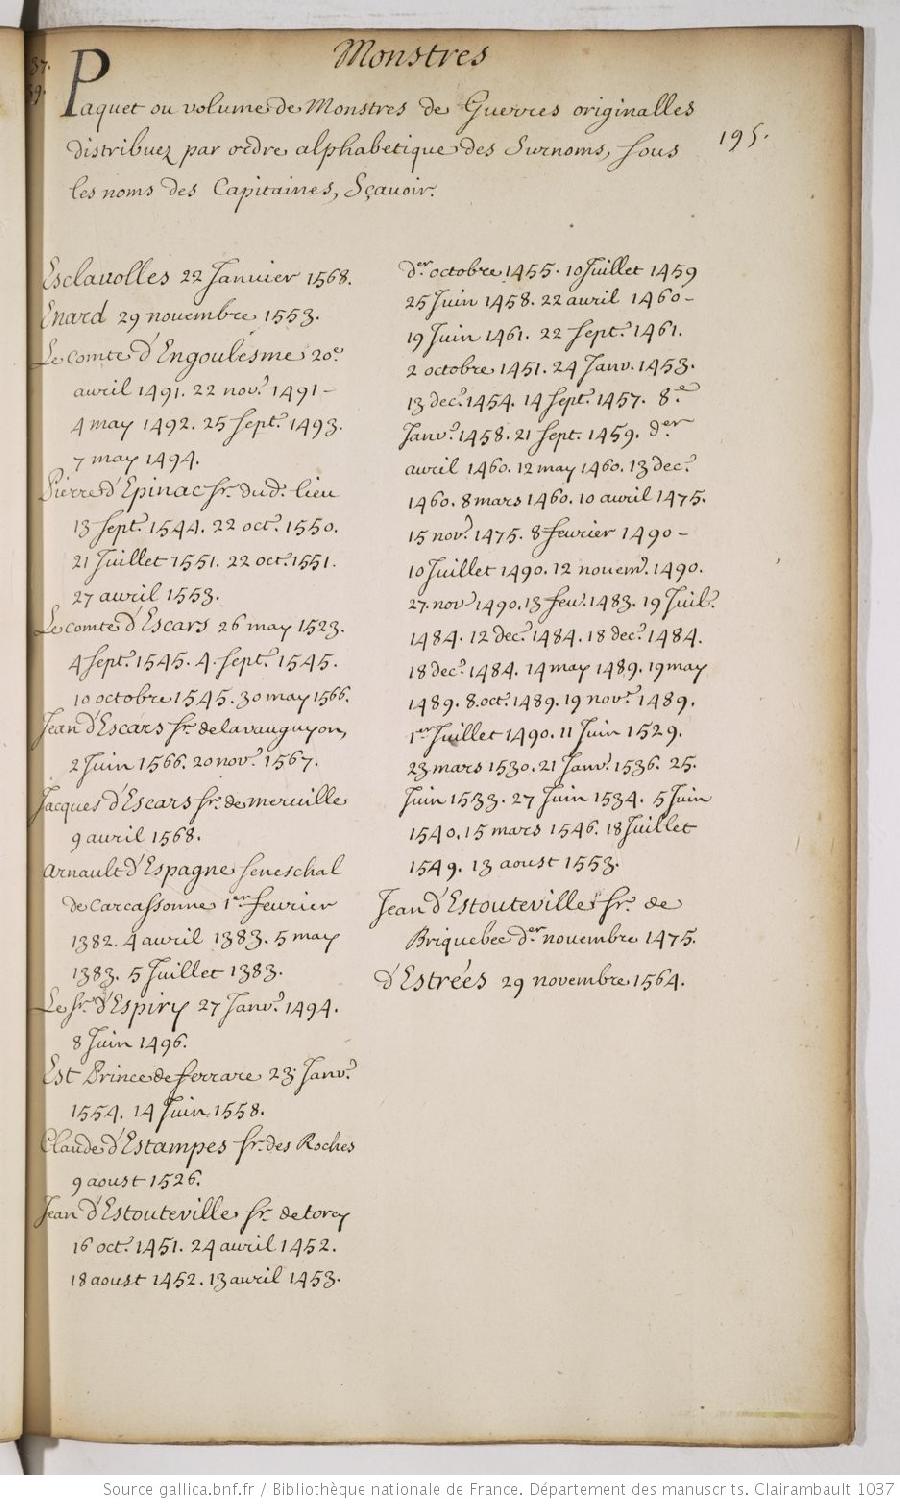 Monstres
Paquet ou volume de Monstres de Guerres originalles
distribuez par ordre alphabetique des Surnoms, sous
195.
les noms des Capitaines, Sçavoir.
Esclauolles 22 Januier 1568.
Enard 29 nouembre 1553.
Le comte d'Engoulesme 20e
auril 1491. 22 nov.e 1491 –
4 may 1492. 25 sept.e 1493.
7 may 1494.
Pierre d'Epinac sr. dud. lieu
13 sept.e 1544. 22 oct.e 1550.
21 Juillet 1551. 22 oct.e 1551.
27 auril 1553.
Le comte d'Escars 26 may 1523.
4 sept.e 1545. 4. sept.e 1545.
10 octobre 1545. 30 may 1566.
Jean d'Escars sr. de lavauguyon,
2 Juin 1566. 20 nov.e 1567.
Jacques d'Escars sr. de merville
9 auril 1568.
Arnault d'Espagne seneschal
de Carcassonne 1er feurier
1382. 4 auril 1383. 5 may
1383. 5 Juillet 1383.
Le sr. d'Espiry 27 Janv.e 1494.
8 Juin 1496.
Est Prince de ferrare 23 Janv.e
1554. 14 Juin 1558.
Claude d'Estampes sr. des Roches
9 aoust 1526.
Jean d'Estouteville sr. de torcy
16 oct.e 1451. 24 auril 1452.
18 aoust 1452. 13 avril 1453.
der octobre 1455. 10 Juillet 1459
25 Juin 1458. 22 auril 1460 –
19 Juin 1461. 22 sept.e 1461.
2 octobre 1451. 24 Janv. 1453.
13 dec.e 1454. 14 sept.e 1457. 8.e
Janv.e 1458. 21 sept. 1459. der
avril 1460. 12 may 1460. 13 dec.e
1460. 8 mars 1460. 10 avril 1475.
15 nov.e 1475. 8 feurier 1490 –
10 Juillet 1490. 12 nouem.e 1490.
27. nov.e 1490. 13 feu.e 1483. 19 Juil.e
1484. 12 dec.e 1484. 18 dec.e 1484.
18 dec.e 1484. 14 may 1489. 19 may
1489. 8. oct.e 1489. 19 nov.e 1489.
1er Juillet 1490. 11 Juin 1529.
23 mars 1530. 21 Janv.e 1536. 25.
Juin 1533. 27 Juin 1534. 5 Juin
1540. 15 mars 1546. 18 Juillet
1549. 13 aoust 1553.
Jean d'Estouteville sr. de
Briquebec der nouembre 1475.
d'Estrées 29 novembre 1564.
Source gallica.bnf.fr / Bibliothèque nationale de France. Département des manuscrits. Clairambault 1037